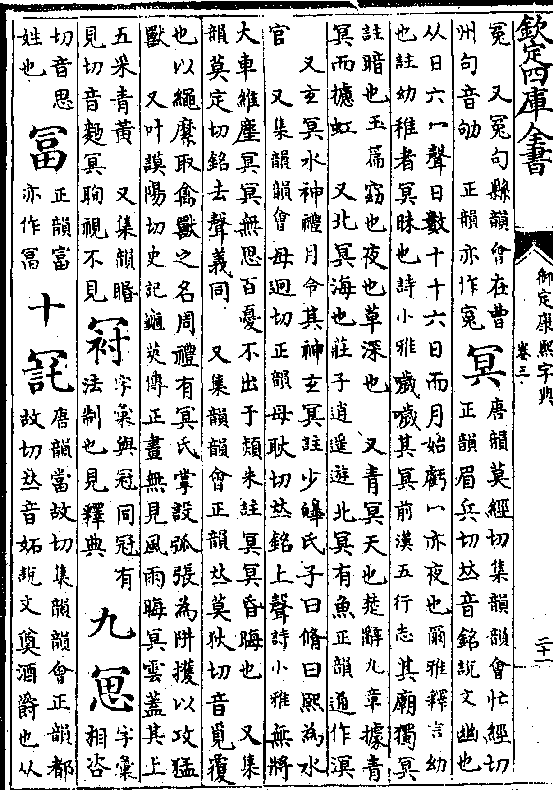 欽定四庫全書
御定康熙字典
卷三
二十一
冤 又冤句縣韻會在曹
州句音劬 正韻亦作寃
冥
唐韻莫經切集韻韻會忙經切
正韻眉兵切𠀤音銘說文幽也
从日六冖聲日數十十六日而月始虧冖亦夜也爾雅釋言幼
也註幼稚者冥昧也詩小雅噦噦其冥前漢五行志其廟獨冥
註暗也玉篇窈也夜也草深也 又青冥天也楚辭九章據青
冥而攄虹 又北冥海也莊子逍遙遊北冥有魚正韻通作溟
又玄冥水神禮月令其神玄冥註少皥氏子曰脩曰熙為水
官 又集韻韻會母迥切正韻母耿切𠀤銘上聲詩小雅無將
大車維塵冥冥無思百憂不出于熲朱註冥冥昏晦也 又集
韻莫定切銘去聲義同 又集韻韻會正韻𠀤莫狄切音覓覆
也以繩縻取禽獸之名周禮有冥氏掌設弧張為阱擭以攻猛
獸 又叶謨陽切史記龜筴傳正晝無見風雨晦冥雲蓋其上
五采青黃 又集韻眠
見切音麵冥眴視不見
字彙與冠同冠有
法制也見釋典
九
字彙
相咨
切音思
姓也
冨
正韻富
亦作冨
十
㓃
唐韻當故切集韻韻會正韻都
故切𠀤音妬說文奠酒爵也从